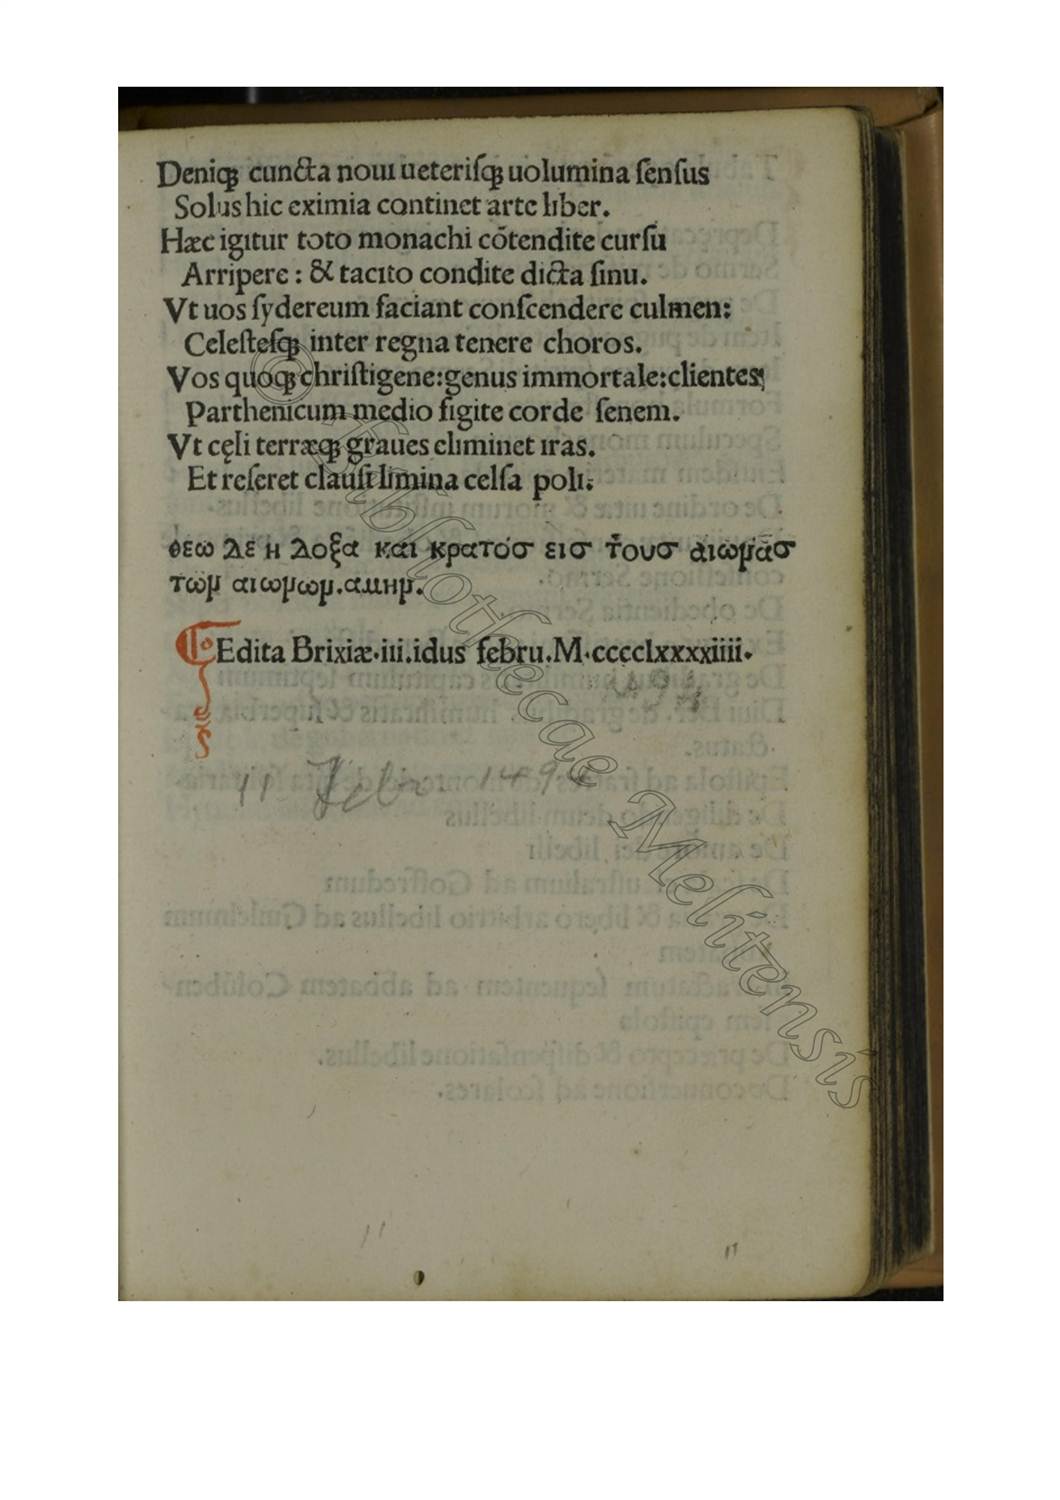 Deniqꝫ cuncta noui ueteriſqꝫ uolumina ſenſus
Solus hic eximia continet arte liber.
Hæc igitur toto monachi cõtendite curſu
Arripere : & tacito condite dicta ſinu.
Vt uos ſydereum faciant conſcendere culmen:
Celeſteſqꝫ inter regna tenere choros.
Vos quoqꝫ chriſtigene:genus immortale:clientes
Parthenicum medio figite corde ſenem.
Vt cęli terræqꝫ graues eliminet iras.
Et reſeret clauſi limina celſa poli.
θεω Δε η Δοξα και κρατόσ εισ τ̃ουσ ἀιωμᾶσ
τῶμ αιωμωμ.αμημ.
Edita Brixiæ.iii.idus febru.M.cccclxxxxiiii.
494
11 Febr. 1494
© Bibliothecae Melitensis
11
11